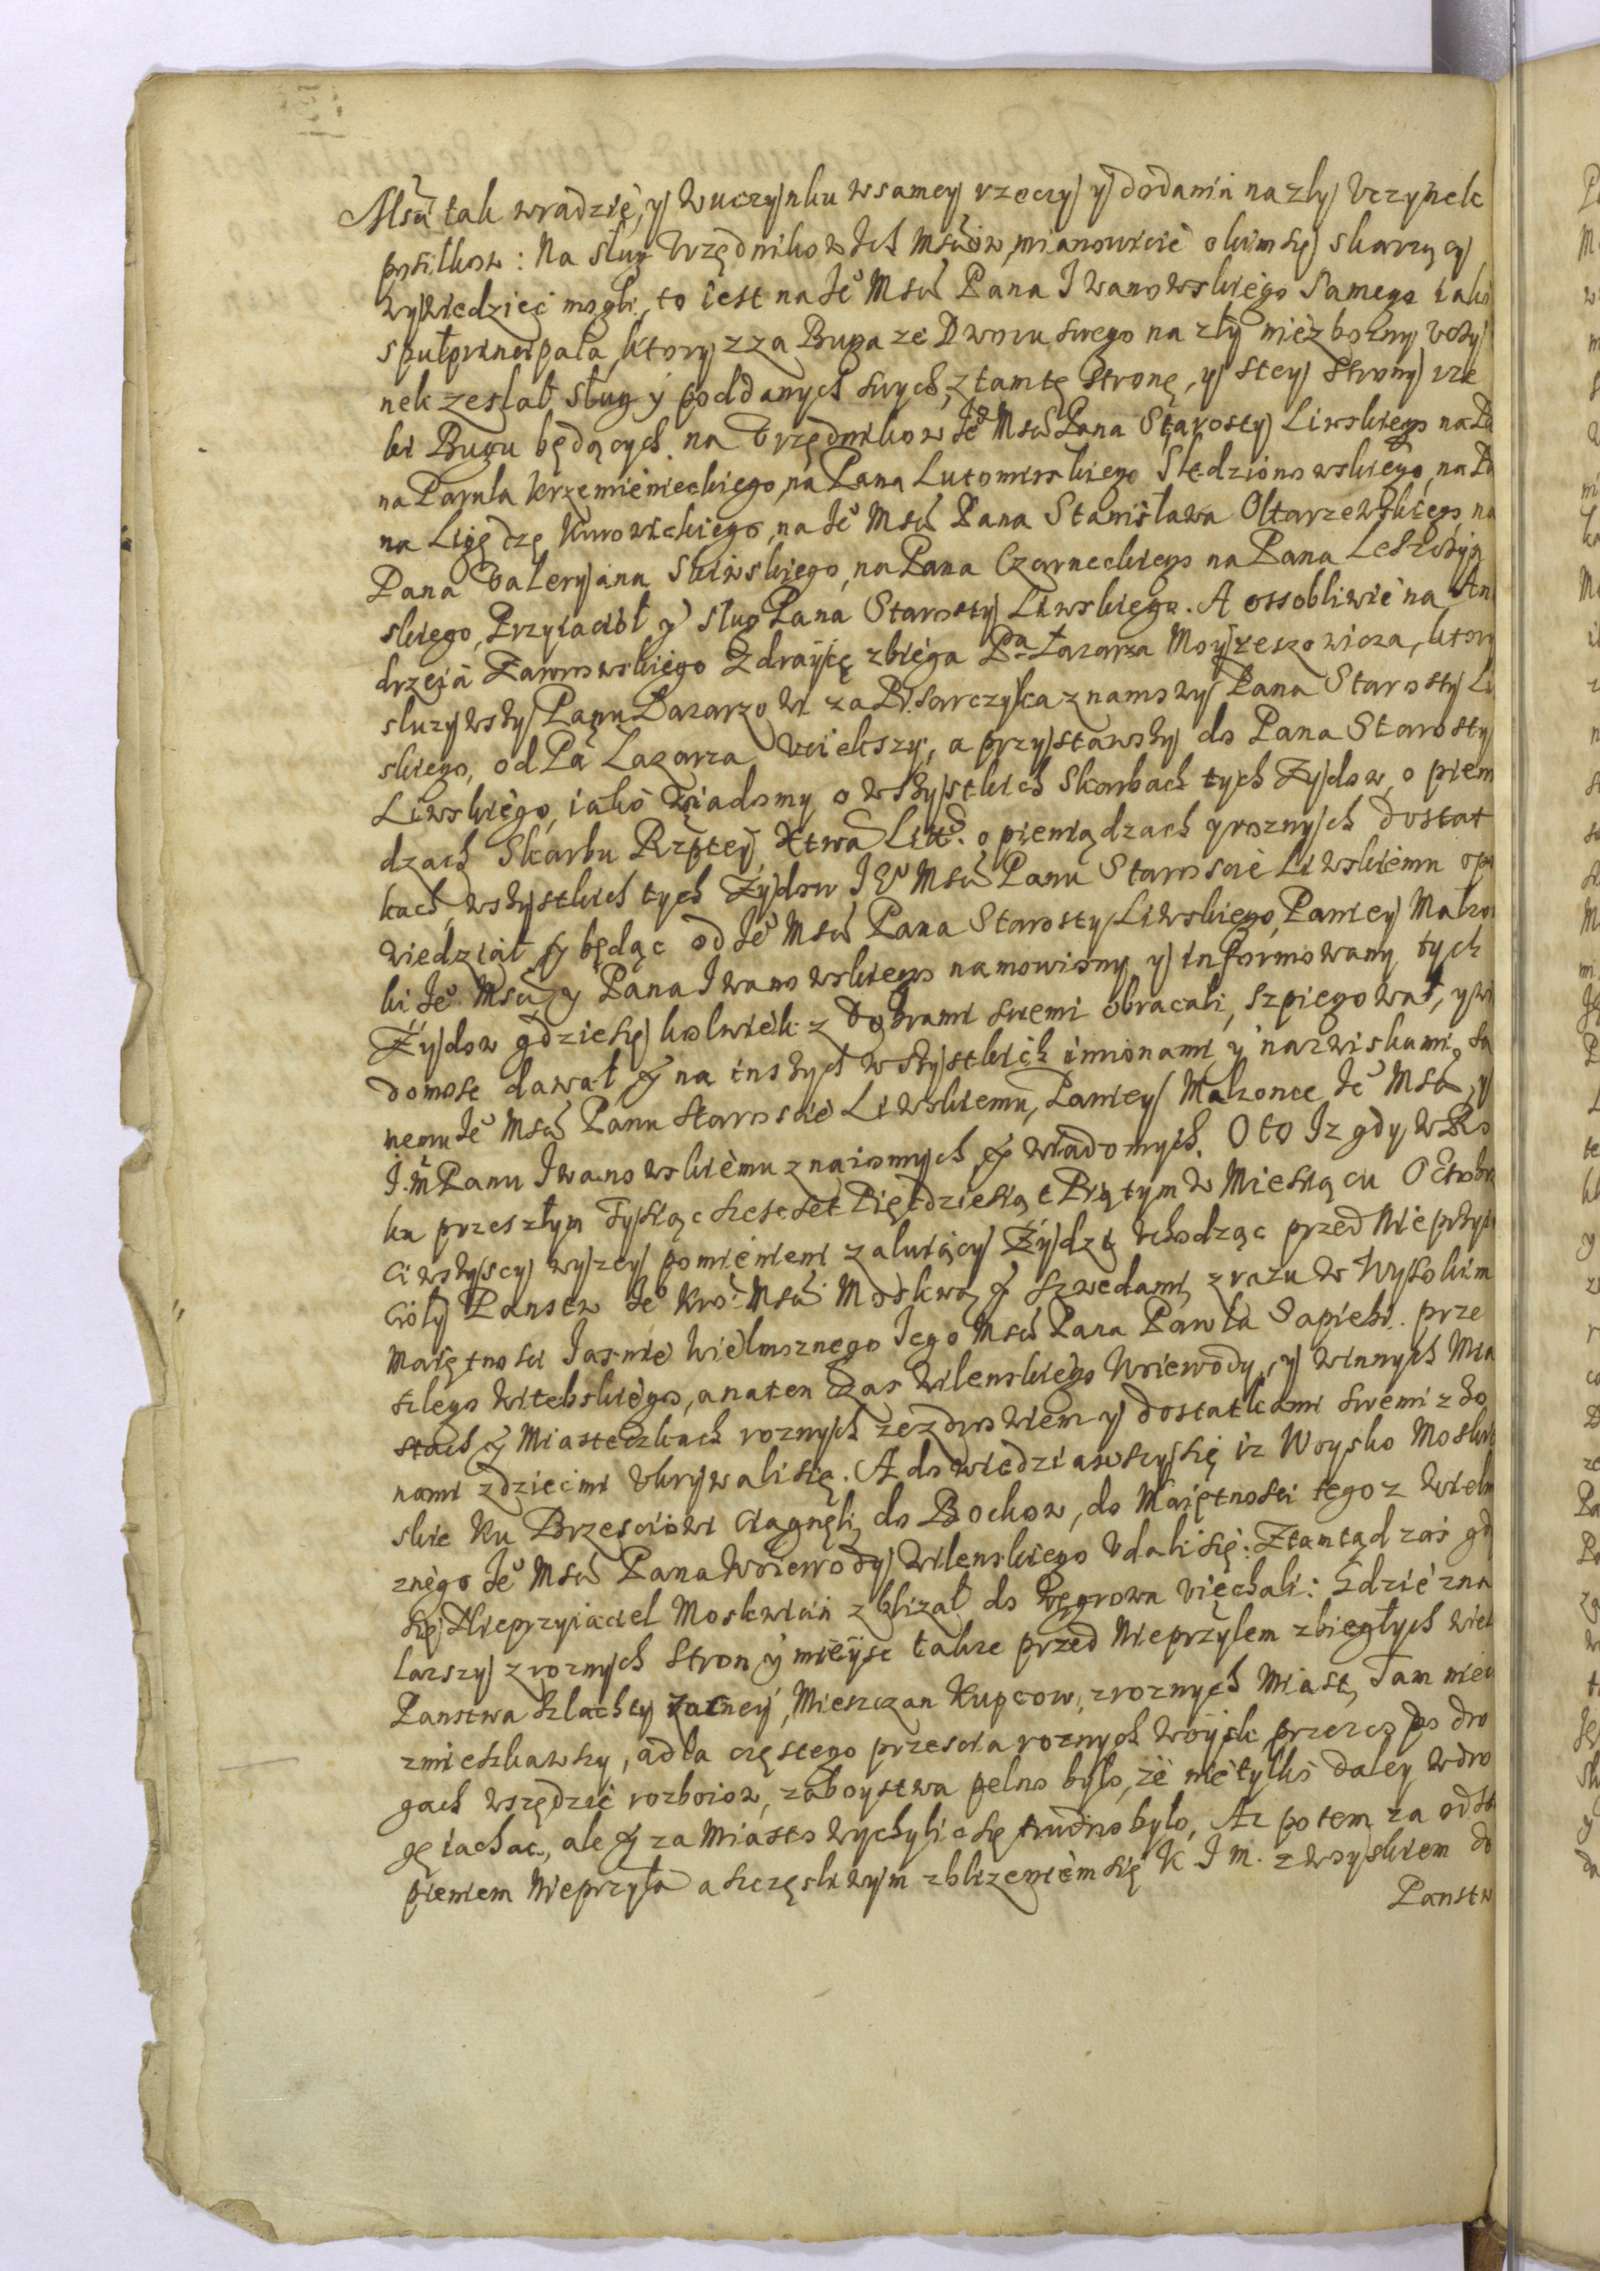 Msci tak wradzię, y wuczynku wsamey rzeczy y dodania nazły Uczynek
posiłkow: Na sług Urzędnikow Ich Msciow, mianowicie o kim się skarzący
wywiedzieć mogli, to iest na Ie° Msci Pana Iwanowskiego Samego iako
spułprincipała, ktory z za Buga ze Dworu swego na zły niezbozny Uczy
nek zesłał sług y poddanych swych, z tamtę stronę, y stey strony rze
ki Bugu będących, na Urzędnikow Ie° Msci Pana Starosty Liwskiego na Pa
na Parula Krzemienieckiego, na Pana Lutomirskiego Sledzionowskiego, na Pa
na Ligędzę Kurowickiego, na Ie° Msci Pana Stanisława Ołtarzewskiego, na
Pana Valeryana Skiwskiego, na Pana Czarneckiego na Pana Leszczyn
skiego, Przyiacioł y sług Pana Starosty Liwskiego. A ossobliwie na An
drzeia Zaworowskiego Zdraycę zbiega Pa Łazarza Moyzeszowicza, ktory
sluzywszy Panu Łazarzowi za Pisarczyka znamowy Pana Starosty Li
skiego, od Pa Lazarza Uciekszy, a przystawszy do Pana Starosty
Liwskiego, iako wiadomy o wszystkich Skarbach tych Zydow, o pien
dzach Skarbu Rzptey Xtwa Litt°. o pieniądzach y roznych dostat
kach, wszystkich tych Zydow Ie° Msci Panu Staroscie Liwskiemu opo
wiedział y będąc od Ie° Msci Pana Starosty Liwskiego, Paniey Małzo
ki Ie° Msci, y Pana Iwanowskiego namowiony y informowany tych
Zydow gdzie się kolwiek z dobrami swemi obracali, szpiegował, y wi
domosc dawał y na inszych wszystkich imionami y nazwiskami, sa
nemu Ie° Msci Panu Staroscie Liwskiemu, Paniey Małzonce Ie° Msci, y
I.M Panu Iwanowskiemu znaiomych y wiadomych. O to Iz gdy w Ro
ku przeszłym Tysiąc szescset Pięcdziesiąt Piątym w Miesiącu Octobr
ci wszyscy wyzey pomienieni załuiący Zydzi Uchodząc przed Nieprzyia
cioły Panstw Ie° Kro: Msci Moskwą y Szwedami, zrazu w Wysokim
Maiętnosci Iasnie Wielmoznego Iego Msci Pana Pawła Sapiehi. prze
szlego Witebskiego, a na ten czas Wilenskiego Woiewody, y winnych Mia
stach y Miasteczkach roznych ze zdrowiem y dostatkami swemi z zo
nami z dziecmi Ukrywali się. A dowiedziawszy się iz Woysko Moskie
skie Ku Brzesciowi ciągnęli, do Bockow, do Maiętnosci tegoz Wielm
znego Ie° Msci Pana Woiewody Wilenskiego Udali się: Ztamtąd zas gdy
się Nieprzyiaciel Moskwicin zblizał do Węgrowa Uiechali: Gdzie zna
lazszy z roznych Stron y mieysc takze przed Nieprzylem zbiegłych wiel
Panstwa szlachty zacney, Mieszczan Kupcow, z roznych Miast, Tam nieco
zmieszkawszy, a dla częstego przescia roznych woysk przez co po dro
gach wszędzie rozboiow, zaboystwa pełno było, ze nie tylko daley w dro
gę iachac, ale y za Miasto wychylic się trudno było, Az potem za odstą
pieniem Nieprzyla a szczęsliwym zblizeniem się K. I M. z woyskiem do
Panstw